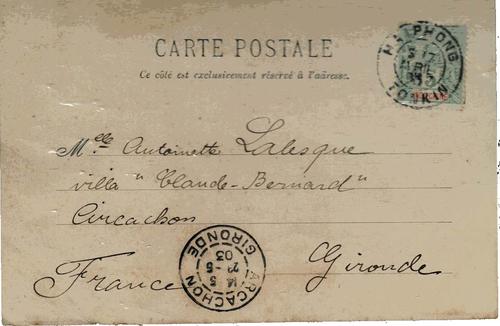 CARTE POSTALE
Ce côté est exclusivement réservé à l'adresse.
HAIPHONG
TONKIN
Melle Antoinette Lalesque
villa "Claude-Bernard"
Arcachon
Gironde
France
ARCACHON
14 5
03
GIRONDE